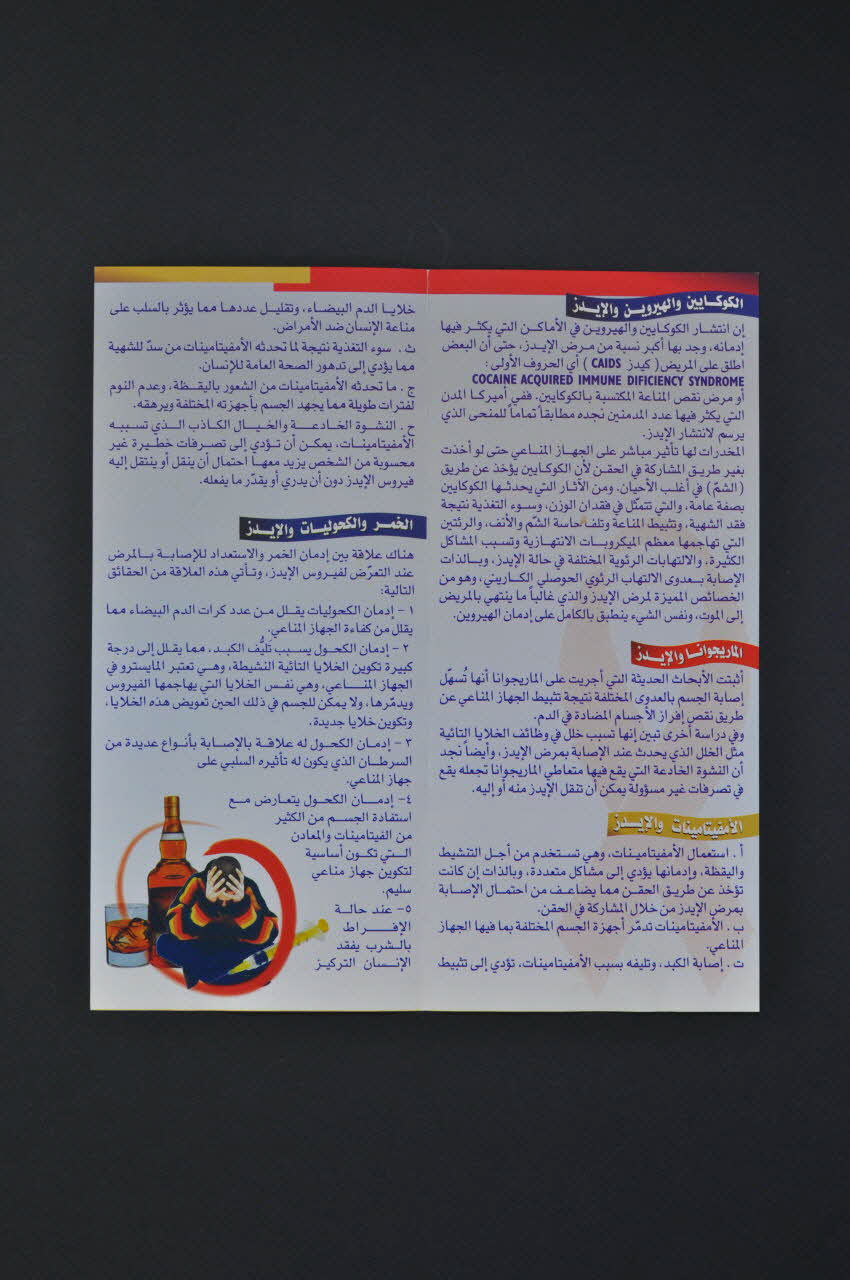 الكوكـايين والهيرويـن والإيـدز
إن انتشـار الكوكـايين والهيرويـن في الأماكـن التي يكثـر فيها
إدمانه، وجد بهـا أكبر نسبة مـن مـرض الإيـدز، حتى أن البعض
اطلق على المريض( كيدز CAIDS ) أي الحروف الأولى :
COCAINE ACQUIRED IMMUNE DIFICIENCY SYNDROME
أو مرض نقص المناعة المكتسبة بالـكوكايين. ففي أميركـا المدن
التي يكثر فيها عدد المدمنين نجده مطابقاً تماماً للمنحى الذي
يرسم لانتشار الإيدز.
المخدرات لها تأثير مباشر على الجهـاز المنـاعي حتى لو أخذت
بغير طريـق المشاركة في الحقـن لأن الكوكايين يؤخذ عن طريق
( الشمّ) في أغلب الأحيان. ومن الآثار التي يحدثـها الكوكايين
بصفة عامة، والتي تتمثّل في فقدان الوزن، وسـوء التغذية نتيجة
فقد الشهية، وتثبيط المناعة وتلف حاسة الشّم والأنف، والرئتين
التي تهاجمها معظم الميكروبات الانتهـازية وتسبب المشاكل
الكثيرة، والالتهابات الرئوية المختلفة في حالة الإيدز، وبـالـذات
الإصابة بعـدوى الالتهاب الرئوي الحوصلي الكاريني، وهـو من
الخصائص المميزة لمرض الإيدز والذي غالباً ما ينتهي بالمريض
إلى الموت، ونفس الشيء ينطبق بالكامل على إدمان الهيروين.
الماريجوانـا والإيـدز
أثبتت الأبحاث الحديثة التي أجريت على الماريجوانا أنها تُسهّل
إصابة الجسم بالعدوى المختلفة نتيجة تثبيط الجهاز المناعي عن
طريق نقص إفراز الأجسام المضادة في الدم.
وفي دراسة أخرى تبين إنها تسبب خلل في وظائف الخلايا التائية
مثل الخلل الذي يحدث عند الإصابة بمرض الإيدز، وأيضاً نجد
أن النشوة الخادعة التي يقع فيها متعاطي الماريجوانا تجعله يقع
في تصرفات غير مسؤولة يمكن أن تنقل الإيدز منه أو إليه.
الأمفيتامينات والإيـدز
أ . استعمال الأمفيتامينـات، وهي تستخدم من أجـل التنشيط
واليقظة، وإدمانها يؤدي إلى مشاكل متعددة، وبالذات إن كانت
تؤخذ عن طريـق الحقـن مما يضـاعـف من احتمـال الإصـابة
بمرض الإيدز من خلال المشاركة في الحقن.
ب . الأمفيتامينات تدمّر أجهزة الجسم المختلفة بما فيها الجهاز
المناعي.
ت . إصابة الكبد، وتليفه بسبب الأمفيتامينات، تؤدي إلى تثبيط
خلايـا الدم البيضـاء، وتقليـل عددهـا ممـا يؤثر بالسلب على
مناعة الإنسان ضد الأمراض.
ث . سوء التغذية نتيجة لما تحدثه الأمفيتامينات من سدّ للشهية
مما يؤدي إلى تدهور الصحة العامة للإنسان.
ج . ما تحدثه الأمفيتامينات من الشعور باليقـظة، وعدم النوم
لفترات طويلة مما يجهد الجسم بأجهزته المختلفة ويرهقه.
ح . النشوة الخـادعـــة والخيـال الكـاذب الـذي تسببــه
الأمفيتامينـات، يمكـن أن تـؤدي إلى تصرفـات خطيـرة غير
محسوبة من الشخص يزيد معهـا احتمال أن ينقل أو ينتقل إليه
فيروس الإيدز دون أن يدري أو يقدّر ما يفعله.
الخمر والكحوليات والإيـدز
هنـاك علاقـة بين إدمـان الخمر والاستعداد للإصـابة بـالمرض
عند التعرّض لفيـروس الإيدز، وتـأتي هذه العلاقة من الحقائق
التالية:
١ – إدمان الكحوليات يقلل مـن عدد كرات الدم البيضاء مما
يقلل من كفاءة الجهاز المناعي.
٢ – إدمان الكحـول يسبـب تليُّف الكبـد، ممـا يقلل إلى درجة
كبيرة تكوين الخلايا التائية النشيطة، وهـي تعتبر المايسترو في
الجهاز المنـــاعي، وهي نفـس الخلايا التي يهاجمها الفيروس
ويدمّرها، ولا يمكن للجسم في ذلك الحين تعويض هذه الخلايا،
وتكوين خلايا جديدة.
٣ – إدمان الكحـول له علاقـة بالإصـابة بأنـواع عديدة من
السرطان الذي يكون له تأثيره السلبي على
جهاز المناعي.
٤– إدمــان الكحول يتعـارض مـع
استفـادة الجسـم من الكثير
من الفيتامينات والمعادن
التـي تكـون أساسية
لتكوين جهاز مناعي
سليم.
٥– عند حالــة
الإفــــراط
بـالشـرب يفقد
الإنـسـان التركيـز